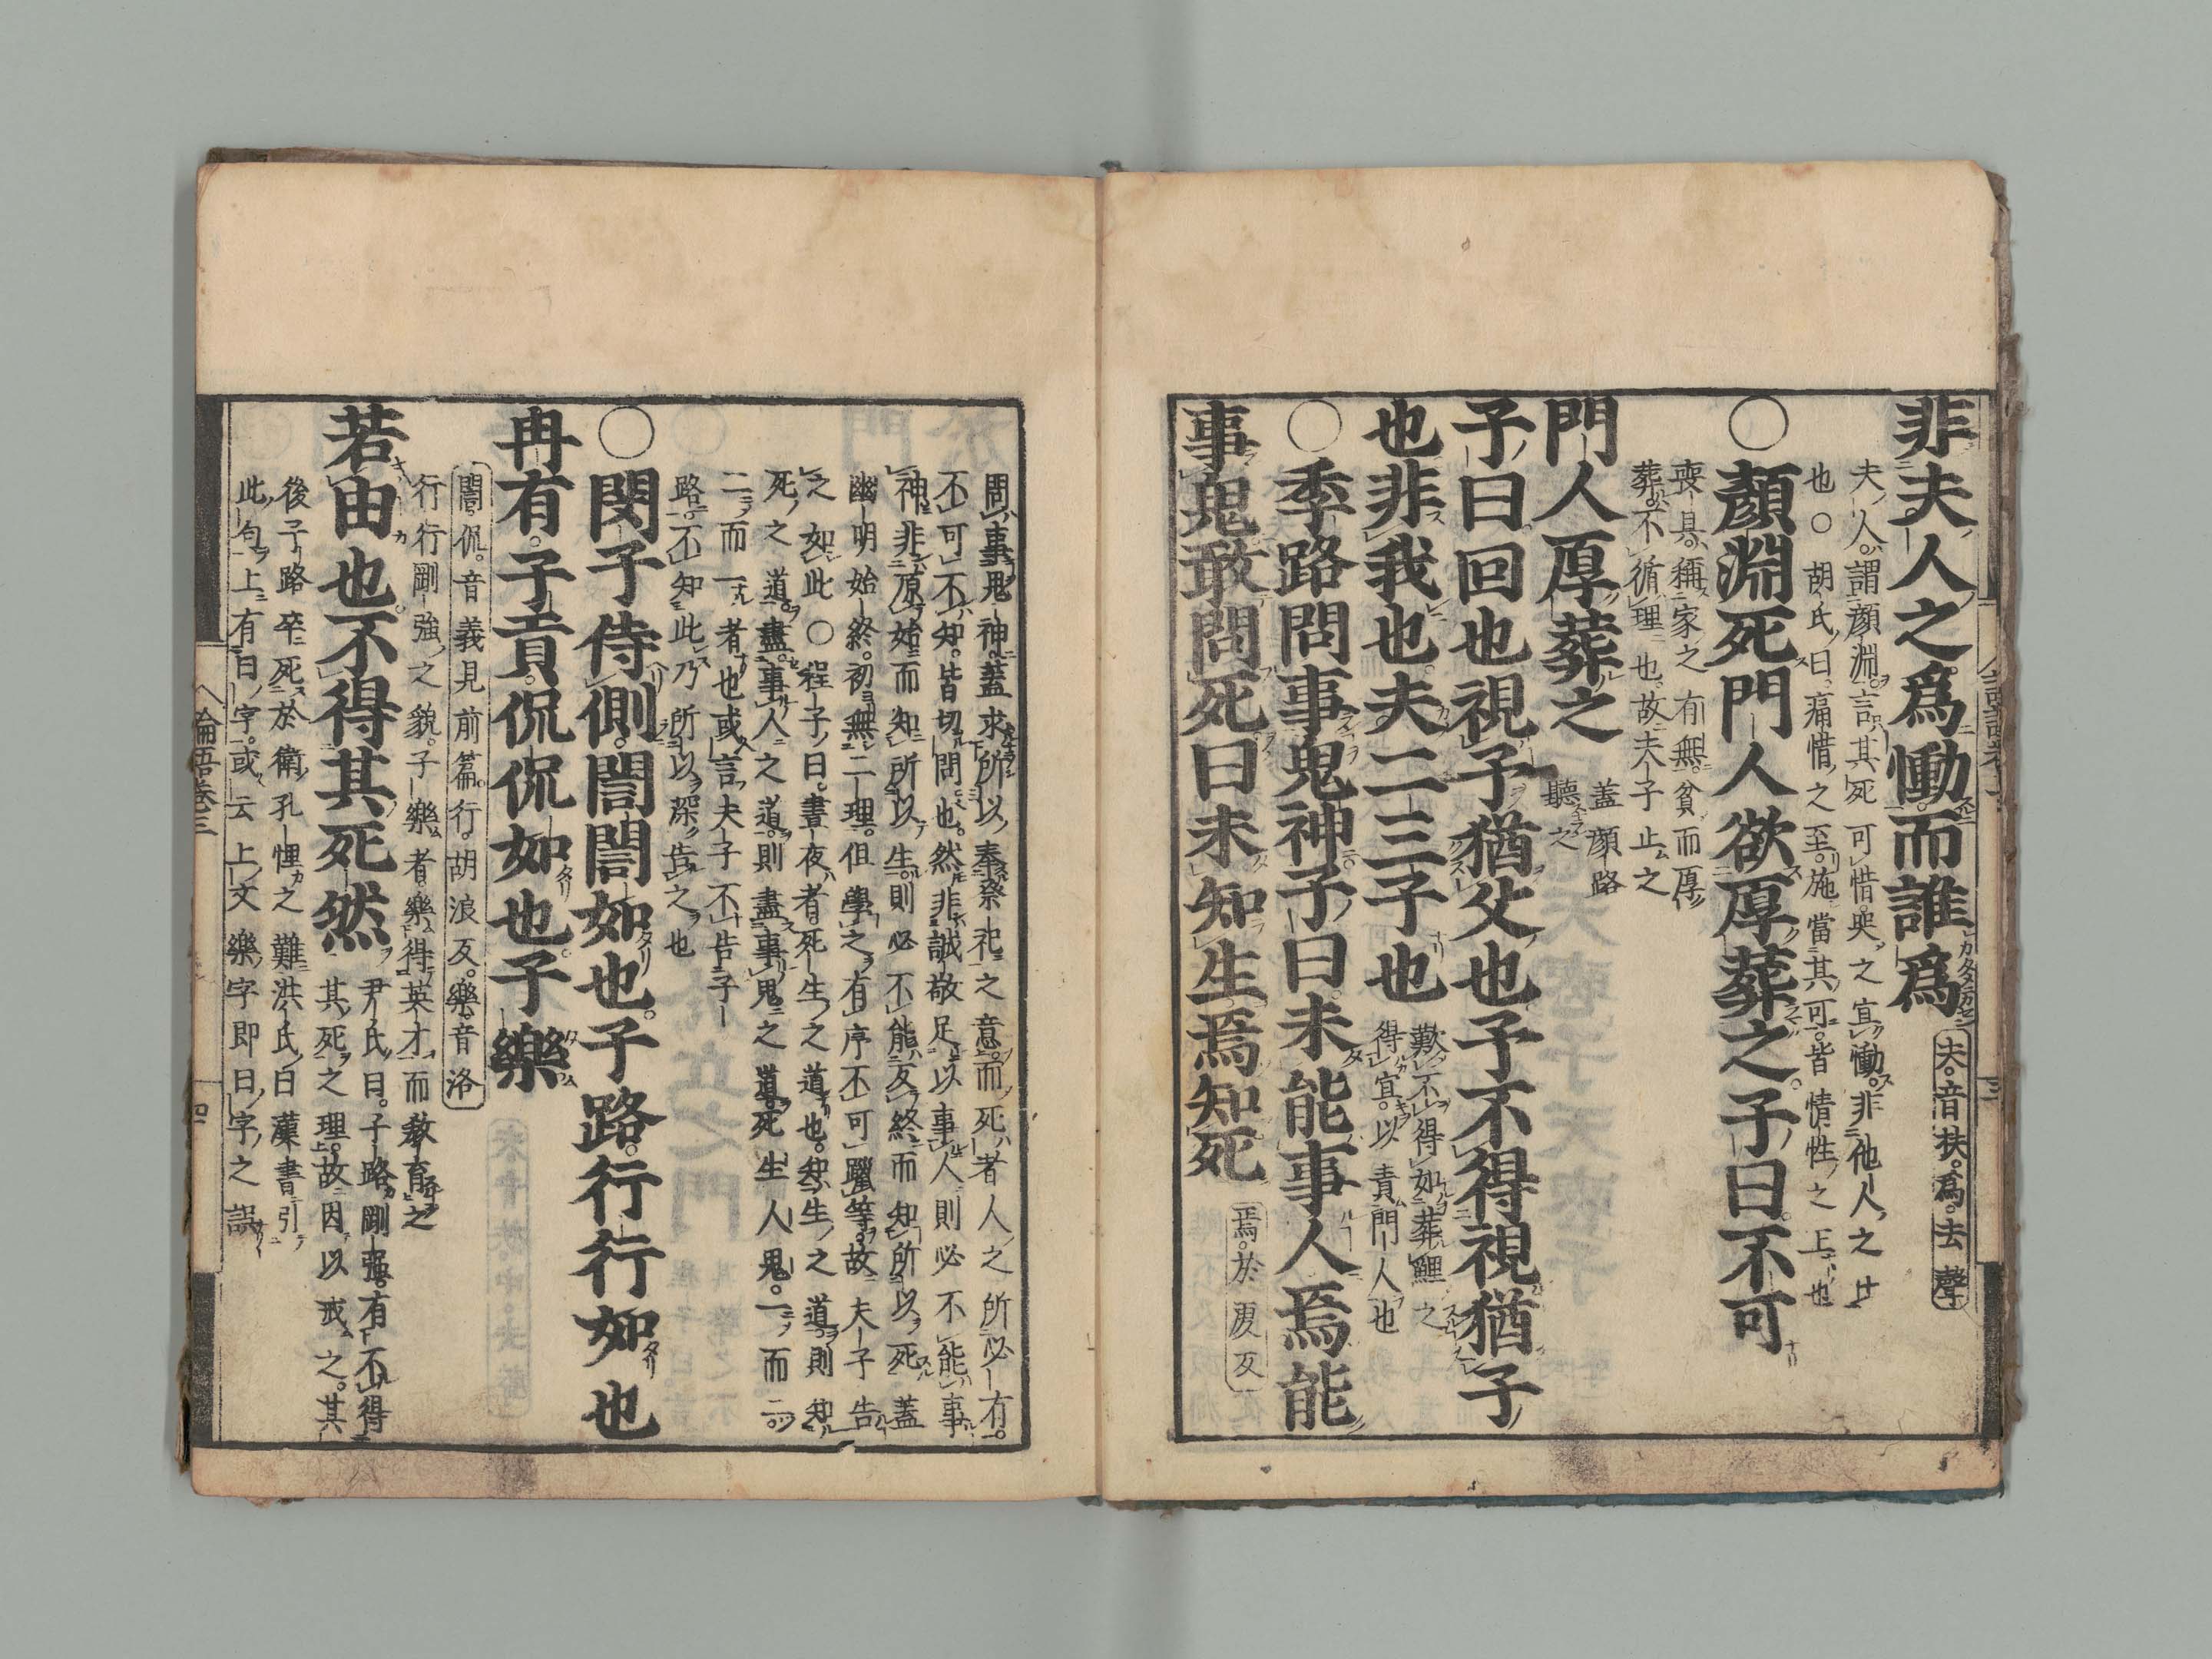 非夫人之爲慟而誰爲
夫音扶爲去聲
夫人謂顏淵言其死可惜哭之宜慟非他人之比
也○胡氏曰痛惜之至施當其可皆情性之正也
○顏淵死門人欲厚葬之子曰不可
喪具稱家之有無貧而厚
葬不循理也故夫子止之
門人厚葬之
蓋顏路
聽之
子曰回也視予猶父也予不得視猶子
也非我也夫二三子也
歎不得如葬鯉之
得宜以責門人也
○季路問事鬼神子曰未能事人焉能
事鬼敢問死曰未知生焉知死
焉於䖍反
問事鬼神蓋求所以奉祭祀之意而死者人之所必有
不可不知皆切問也然非誠敬足以事人則必不能事
神非原始而知所以生則必不能反終而知所以死蓋
幽明始終初無二理但學之有序不可躐等故夫子告
之如此○程子曰晝夜者死生之道也知生之道則知
死之道盡事人之道則盡事鬼之道死生人鬼一而二
二而一者也或言夫子不告子
路不知此乃所以深告之也
○閔子侍側誾誾如也子路行行如也
冉有子貢侃侃如也子樂
誾侃音義見前篇行胡浪反樂音洛
行行剛強之貌子樂者樂得英才而教育之
若由也不得其死然
尹氏曰子路剛强有不得
其死之理故因以戒之其
後子路卒死於衛孔悝之難洪氏曰漢書引
此句上有曰字或云上文樂字即曰字之誤
論語卷三
四